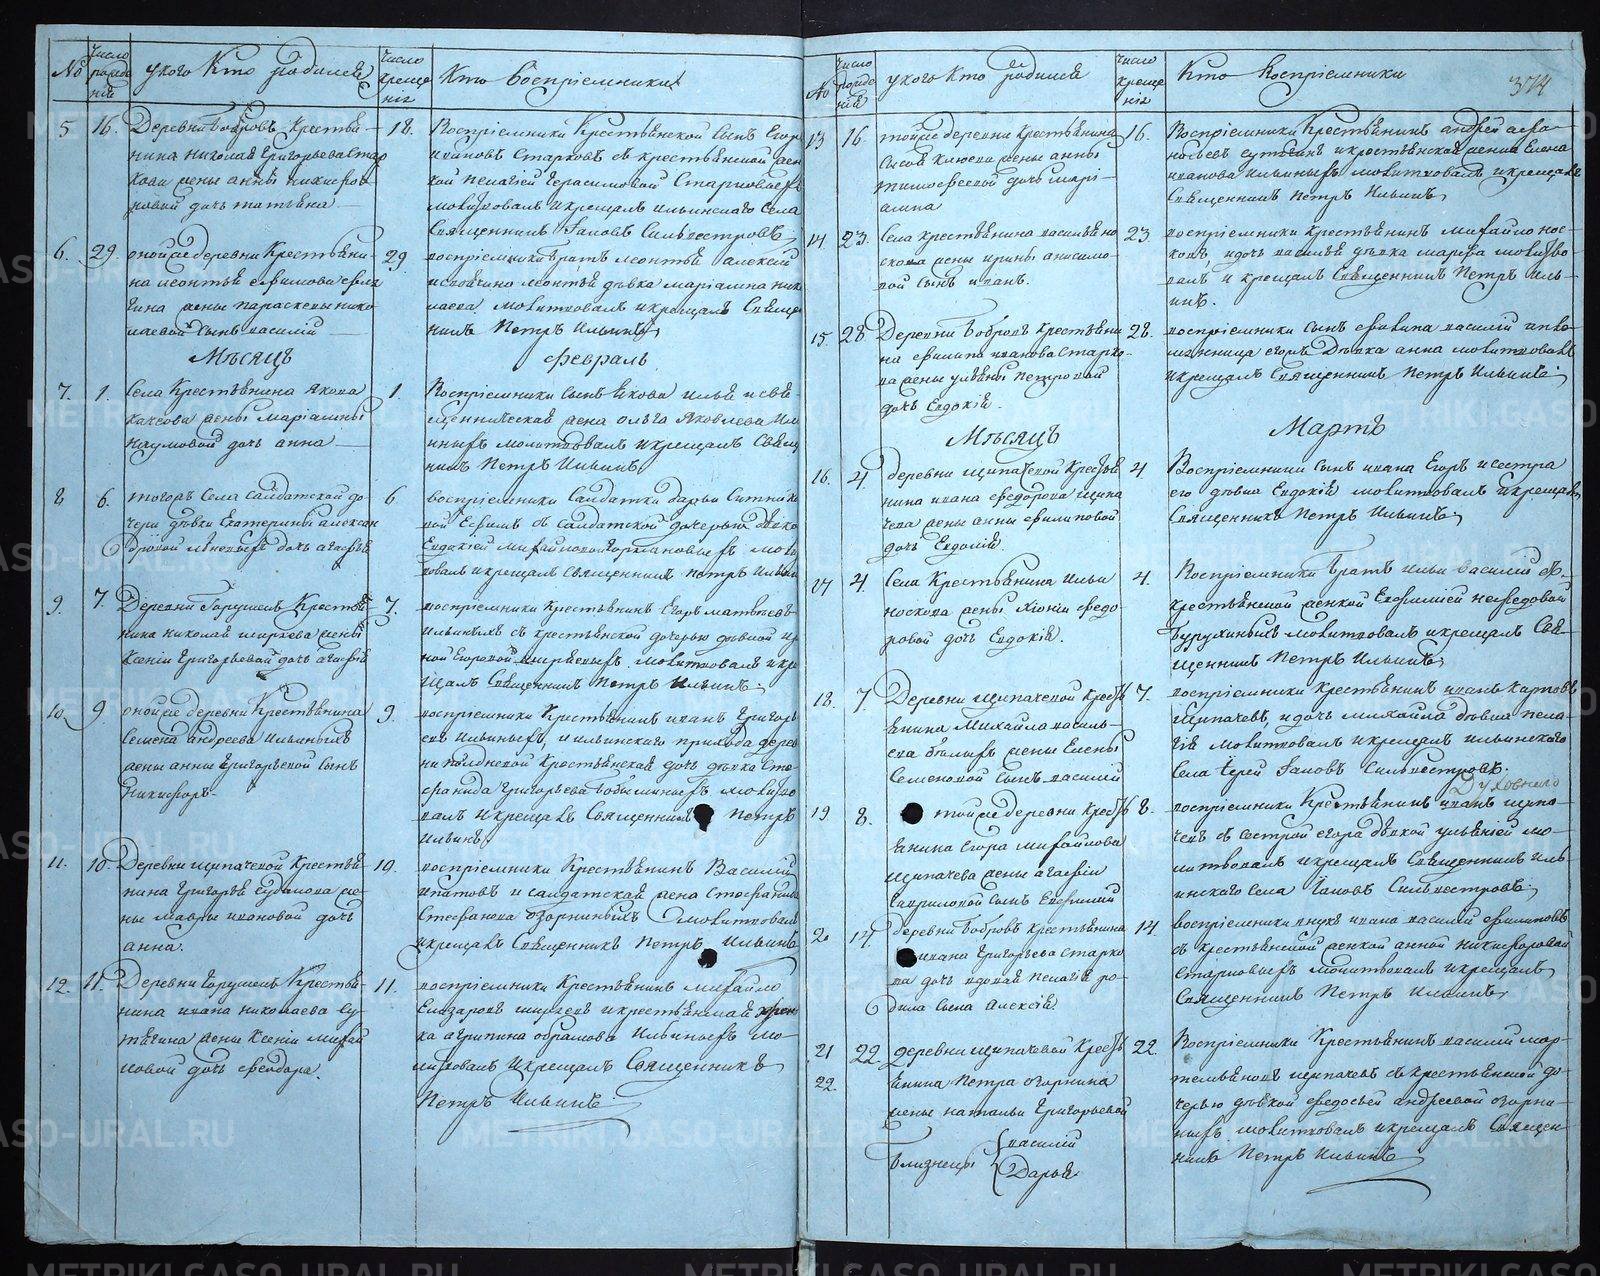 №
Число рожде ния
У кого Кто Родился
Число креще ния
Кто Восприемники
5
16.
Деревни Бобровъ Крестья-
нина Николая Григорьева Стар
кова жены Анны Никифоро
ровой дочь Татьяна
18.
Восприемники Крестьянской сынъ Егоръ
Ивановъ Старковъ съ крестьянской жен
кой Пелагией Герасимовой Старковыхъ
молитвовалъ и крещалъ Ильинскаго Села
Священникъ Иаковъ Сильвестровъ
6.
29.
оной же деревни Крестьяни-
на Леонтья Ефимова
жены Парасковьи Нико
лаевой сынъ Василий
29
восприемники братъ Леонтья Алексей
Леонтья дѣвка Мариамна Ник
лаева молитвовалъ и крещалъ Свяще
никъ Петръ Ильинъ
Мѣсяцъ
Февраль
7.
1.
Села Крестьянина Якова
жены Мариамны
Наумовой дочь Анна
1.
Восприемники сынъ Якова Илья и свя
щенническая жена Ольга Яковлева Иль
иныхъ молитвовалъ и крещалъ Свящ
никъ Петръ Ильинъ
8
6.
тогожъ Села Салдатской до
чери дѣвки Екатерины Алексан
дровой дочь Агафья
6
восприемники Салдатки Дарьи Ситник
вой Ефимъ съ салдатской дочерью дѣвко
Евдокией Михайловой Гормановыхъ моли
вовалъ и крещалъ Священникъ Петръ Ильинъ
9.
7.
Деревни Горушекъ Крестья
нина Николая Ширяева жены
Ксении Григорьевой дочь Агафья
7.
восприемники Крестьянинъ Егоръ Матвѣевъ
Ильиныхъ съ крестьянской дочерью дѣвкой Ир
ной Егоровой Ширяевыхъ молитвовалъ и кре
щалъ Священникъ Петръ Ильинъ
10
9
оной же деревни Крестьянина
Семена Андреева Ильиныхъ
жены Анны Григорьевой сынъ
Никифоръ
9.
восприемники Крестьянинъ Иванъ Григорь
евъ Ильиныхъ, и Ильинскаго прихода дерев
ни Полдневой Крестьянская дочь дѣвка Сте
фанида Григорьева молитво
валъ и крещалъ Священникъ Петръ
Ильинъ
11.
10.
Деревни Щипачевой Крестья
нина Григорья же
ны Мавры Ивановой дочь
Анна.
10.
восприемники Крестьянинъ Василий
Ипатовъ и салдатская жена Стефанида
Стефанова Озорниныхъ молитвовалъ
и крещалъ Священникъ Петръ Ильинъ
12.
11.
Деревни Горушекъ Крестья
нина Ивана Николаева Су
тягина жены Ксении Михай
ловой дочь Феодора.
11.
восприемники Крестьянинъ Михайло
Елизаровъ Ширяевъ и крестьянская жен
ка Агрипина Абрамова Ильиныхъ мо-
литвовалъ и крещалъ Священникъ
Петръ Ильинъ
№
Число рожде ния
У кого Кто родился
Число креще ния
Кто Восприемники
374
13
16.
той же деревни Крестьянина
Сысоя Клюева жены Анны
Тимофеевой дочь Мари-
амна
16.
Восприемники Крестьянинъ Андрей Афо-
носьевъ Сутягинъ и крестьянская женка Елена
Иванова Ильиныхъ молитвовалъ и крещалъ
Священникъ Петръ Ильинъ
14
23.
Села Крестьянина Василья Но
скова жены Ирины Анисимо-
вой сынъ Иванъ.
23.
восприемники крестьянинъ Михайло Нос-
ковъ, и дочь Василья дѣвка Марфа молитво-
валъ и крещалъ Священникъ Петръ Иль-
инъ.
15.
28.
Деревни Бобровъ Крестьяни
на Филипа Иванова Старко-
ва жены Ульяны Петровой
дочь Евдокия.
28.
восприемники сынъ Филипа Василий и пле-
мянница Егора дѣвка Анна молитвовалъ
и крещалъ Священникъ Петръ Ильинъ
Мѣсяцъ
Мартъ
16.
4.
деревни Щипачевой Крестья
нина Ивана Федорова Щипа
чева жены Анны Филиповой
дочь Евдокия.
4
Восприемники сынъ Ивана Егоръ и сестра
его дѣвка Евдокия молитвовалъ и крещалъ
Священникъ Петръ Ильинъ
17
4.
Села Крестьянина Ильи
Носкова жены Хионии Федо-
ровой дочь Евдокия.
4.
Восприемники братъ Ильи Василий съ
крестьянской женкой Евфимией Нефедовой
Бурухиныхъ молитвовалъ и крещалъ Свя-
щенникъ Петръ Ильинъ
18.
7.
Деревни Щипачевой Кресть
янина Михайла Василь-
ева Бѣлыхъ жены Елены
Семеновой сынъ Василий
7.
восприемники Крестьянинъ Иванъ Карповъ
Щипачевъ, и дочь Михайла дѣвка Пела-
гия молитвовалъ и крещалъ Ильинскаго
Села Иерей Иаковъ Сильвестровъ.
Духовнаго
19
8.
той же деревни Кресть
янина Егора Михайлова
Щипачева жены Агафьи
Гавриловой сынъ Евфимий
8.
восприемники Крестьянинъ Иванъ Щипа-
чевъ съ сестрой Егора дѣвкой Ульянией мо-
литвовалъ и крещалъ Священникъ Иль-
инскаго Села Иаковъ Сильвестровъ
20
14.
деревни Бобровъ Крестьянина
Ивана Григорьева Старко
ва дочь вдовая Пелагия ро-
дила сына Алексия.
14.
восприемники внукъ Ивана Василий Филиповъ
съ крестьянской женкой Анной Никифоровой
Старковыхъ молитвовалъ и крещалъ
Священникъ Петръ Ильинъ
21
22.
22.
деревни Щипачевой Кресть
янина Петра Озорнина
жены Натальи Григорьевой
близнецы { Василий
Дарья.
22.
Восприемники Крестьянинъ Василий Мар-
темьяновъ Щипачевъ съ крестьянской до-
черью дѣвкой Федосьей Андреевой Озорни-
ныхъ молитвовалъ и крещалъ Священ-
никъ Петръ Ильинъ
METRIKI.GASO-URAL.RU